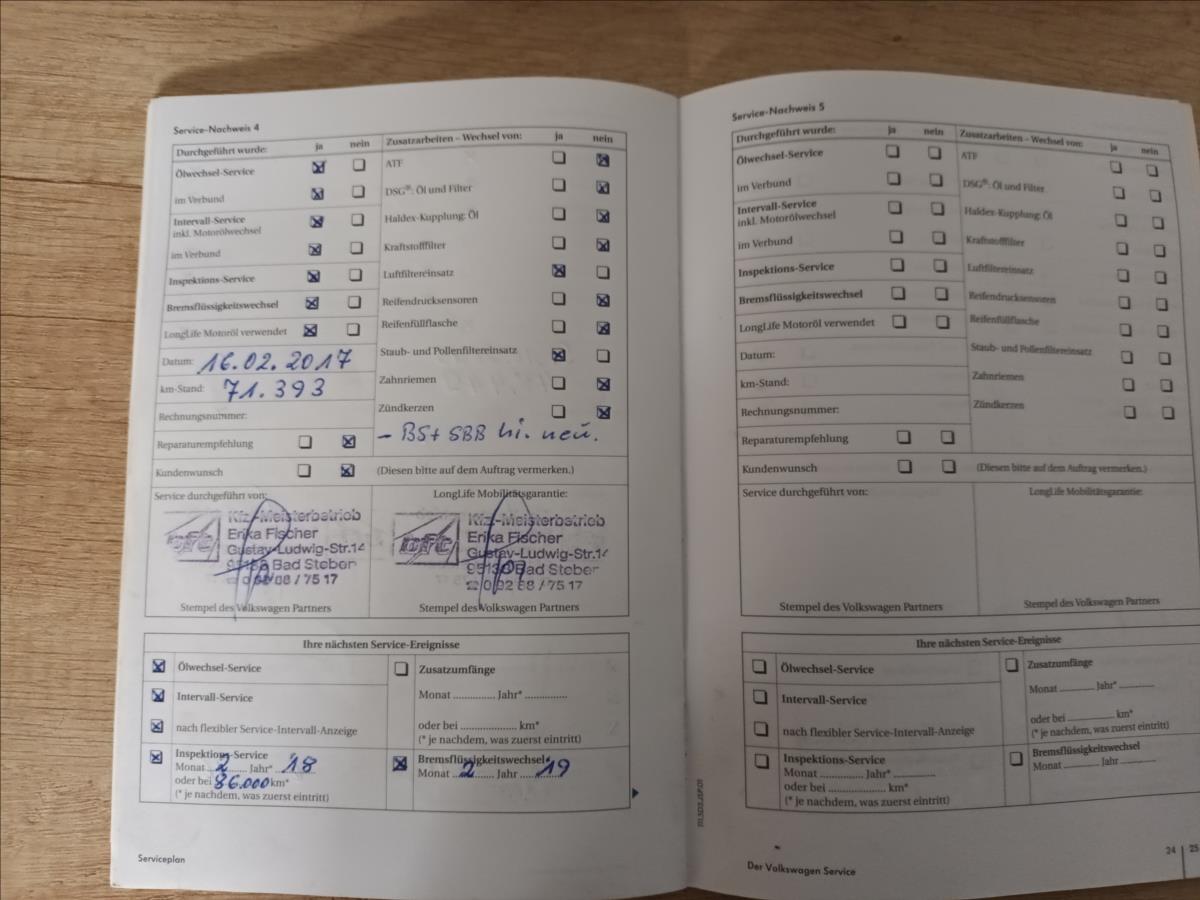 Service-Nachweis 4
Durchgeführt wurde: ja nein
Ölwechsel-Service
im Verbund
Intervall-Service
inkl. Motorölwechsel
im Verbund
Inspektions-Service
Bremsflüssigkeitswechsel
LongLife Motoröl verwendet
Datum: 16.02.2017
km-Stand: 71.393
Rechnungsnummer:
Reparaturempfehlung
Kundenwunsch
Zusatzarbeiten – Wechsel von: ja nein
ATF
DSG®: Öl und Filter
Haldex-Kupplung: Öl
Kraftstofffilter
Luftfiltereinsatz
Reifendrucksensoren
Reifenfüllflasche
Staub- und Pollenfiltereinsatz
Zahnriemen
Zündkerzen
- BS+ SBB hi. neu.
(Diesen bitte auf dem Auftrag vermerken.)
Service durchgeführt von:
cfc
Kfz.-Meisterbetrieb
Erika Fischer
Gustav-Ludwig-Str.14
Bad Steben
/ 75 17
Stempel des Volkswagen Partners
LongLife Mobilitätsgarantie:
cfc
Kfz.-Meisterbetrieb
Erika Fischer
Gustav-Ludwig-Str.14
Bad Steben
0 92 88 / 75 17
Stempel des Volkswagen Partners
Ihre nächsten Service-Ereignisse
Ölwechsel-Service
Intervall-Service
nach flexibler Service-Intervall-Anzeige
Inspektions-Service
Monat 2 Jahr* 18
oder bei 86.000 km*
(* je nachdem, was zuerst eintritt)
Zusatzumfänge
Monat ............... Jahr* ...............
oder bei .................... km*
(* je nachdem, was zuerst eintritt)
Bremsflüssigkeitswechsel
Monat 2 Jahr 19
Serviceplan
Service-Nachweis 5
Durchgeführt wurde: ja nein
Ölwechsel-Service
im Verbund
Intervall-Service
inkl. Motorölwechsel
im Verbund
Inspektions-Service
Bremsflüssigkeitswechsel
LongLife Motoröl verwendet
Datum:
km-Stand:
Rechnungsnummer:
Reparaturempfehlung
Kundenwunsch
Zusatzarbeiten – Wechsel von: ja nein
ATF
DSG®: Öl und Filter
Haldex-Kupplung: Öl
Kraftstofffilter
Luftfiltereinsatz
Reifendrucksensoren
Reifenfüllflasche
Staub- und Pollenfiltereinsatz
Zahnriemen
Zündkerzen
(Diesen bitte auf dem Auftrag vermerken.)
Service durchgeführt von:
Stempel des Volkswagen Partners
LongLife Mobilitätsgarantie:
Stempel des Volkswagen Partners
Ihre nächsten Service-Ereignisse
Ölwechsel-Service
Intervall-Service
nach flexibler Service-Intervall-Anzeige
Inspektions-Service
Monat ............... Jahr* ...............
oder bei .................... km*
(* je nachdem, was zuerst eintritt)
Zusatzumfänge
Monat ............ Jahr* ............
oder bei ................ km*
(* je nachdem, was zuerst eintritt)
Bremsflüssigkeitswechsel
Monat ............ Jahr ............
Der Volkswagen Service
24 | 25